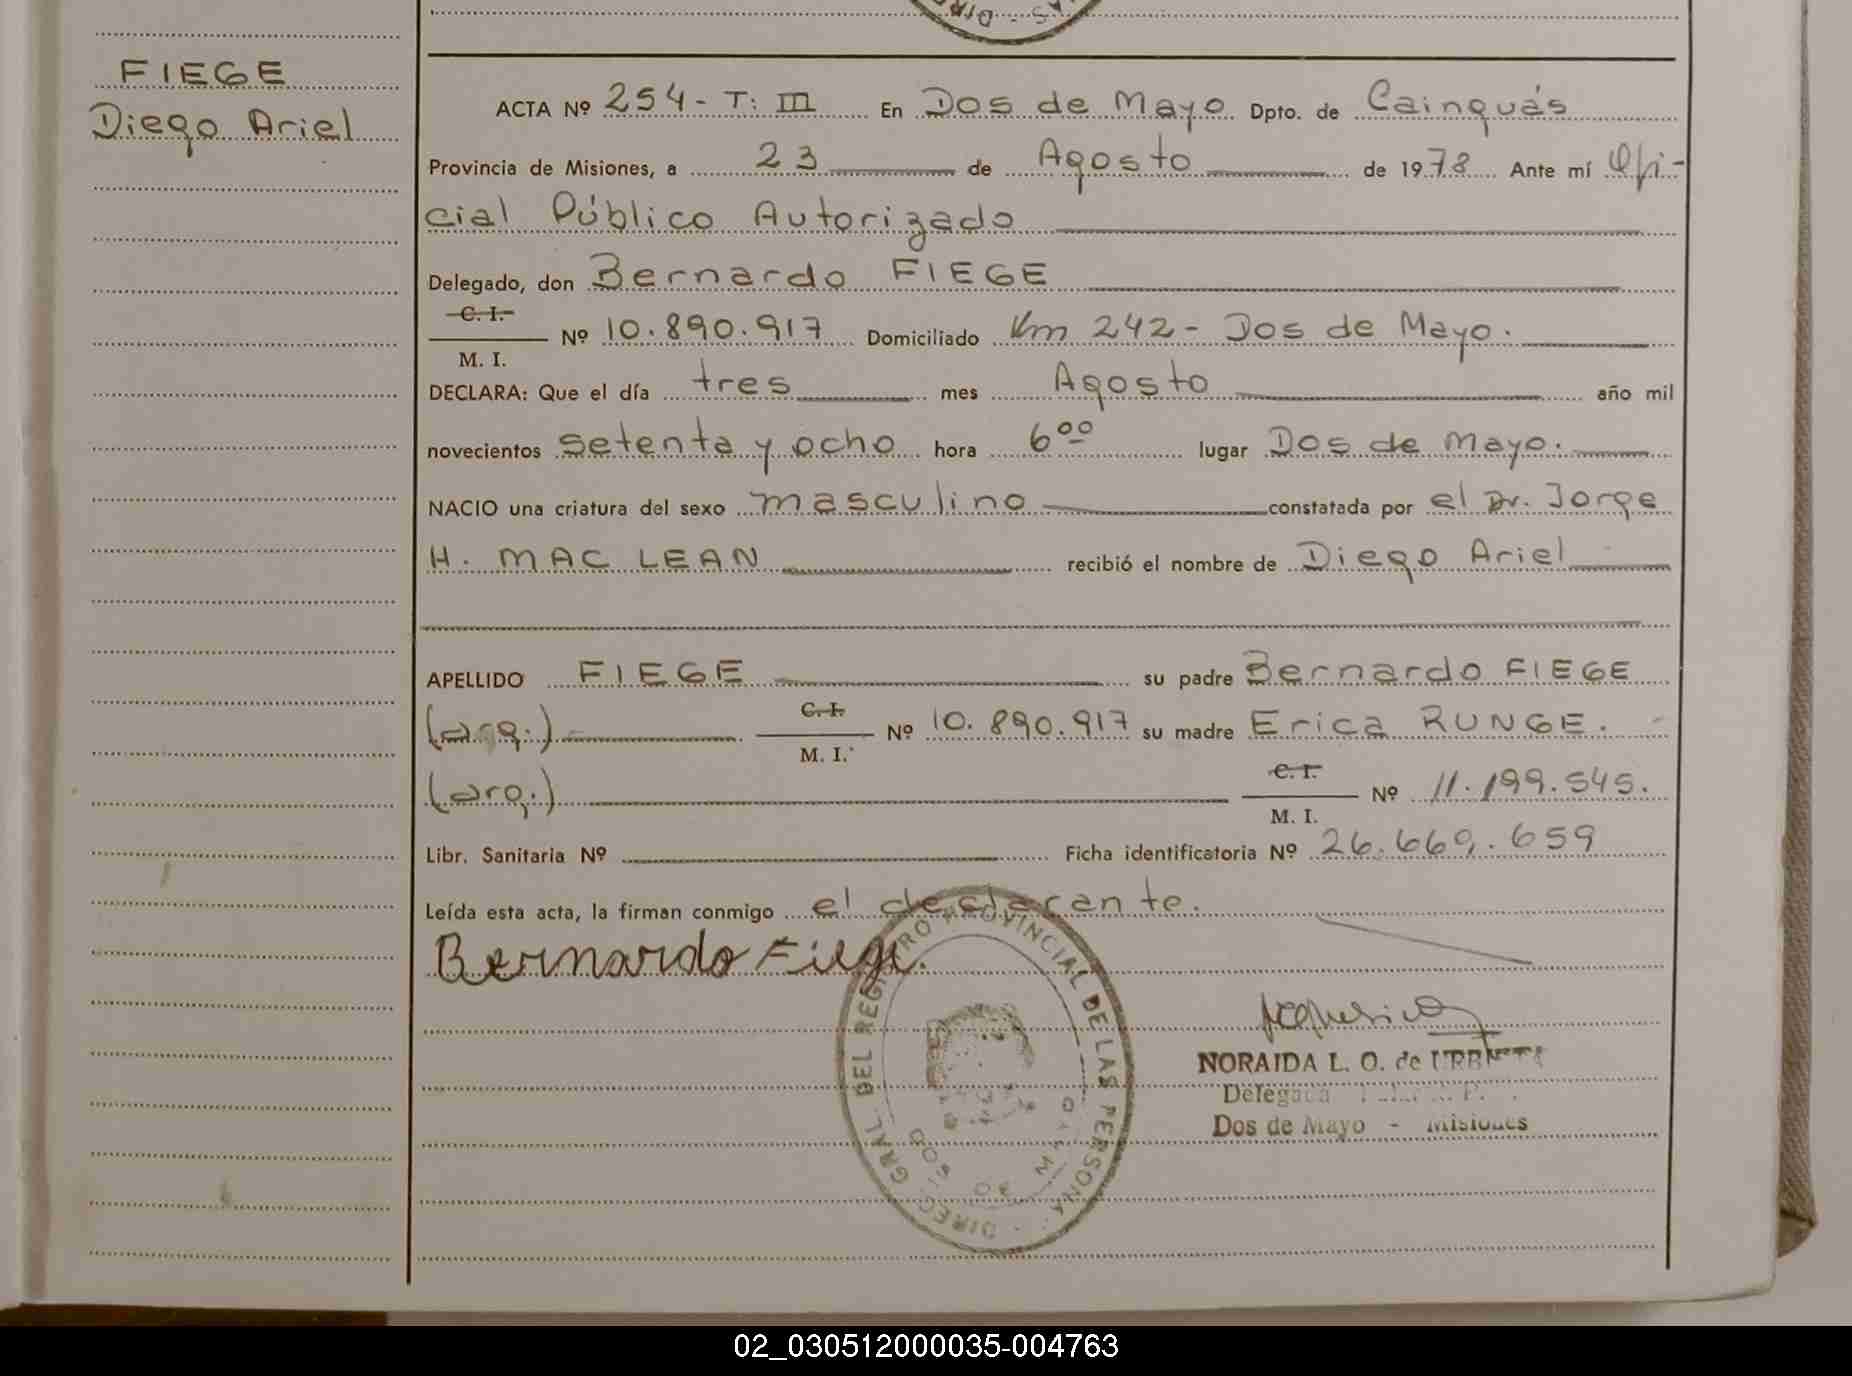 FIEGE
Diego Ariel
ACTA Nº 254 - T: III En Dos de Mayo Dpto. de Cainguás
Provincia de Misiones, a 23 de Agosto de 1978 Ante mí Ofi-
cial Público Autorizado
Delegado, don Bernardo FIEGE
C. I.
M. I.
Nº 10.890.917 Domiciliado Km 242 - Dos de Mayo.
DECLARA: Que el día tres mes Agosto año mil
novecientos setenta y ocho hora 6 00 lugar Dos de Mayo.
NACIO una criatura del sexo masculino constatada por el Dr. Jorge
H. MAC LEAN recibió el nombre de Diego Ariel
APELLIDO FIEGE su padre Bernardo FIEGE
(arg.) C. I. M. I. Nº 10.890.917 su madre Erica RUNGE.
(arg.) C. I. M. I. Nº 11.199.545.
Libr. Sanitaria Nº Ficha identificatoria Nº 26.660.659
Leída esta acta, la firman conmigo el declarante.
Bernardo Fiege.
DIRECC. GRAL. DEL REGISTRO PROVINCIAL DE LAS PERSONA
DOS DE MAYO
NORAIDA L. O. de
Delegada
Dos de Mayo - Misiones
02_030512000035-004763